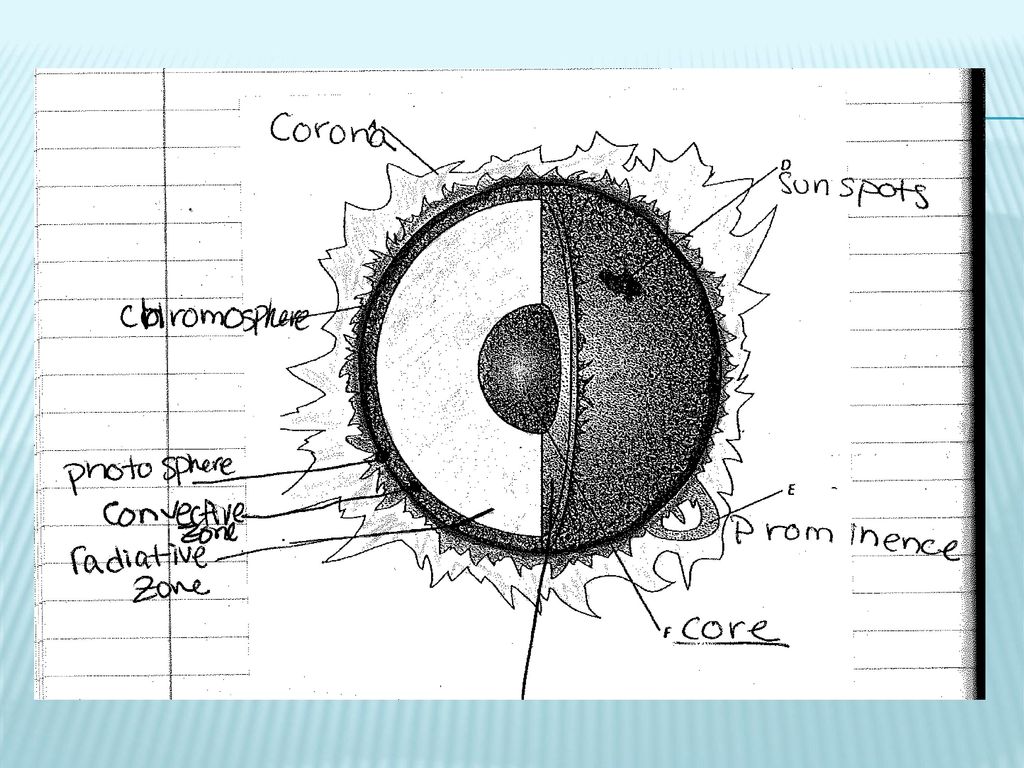 Corona
D
Sun spots
Chromosphere
photosphere
Convective
zone
radiative
zone
E
Prominence
F core